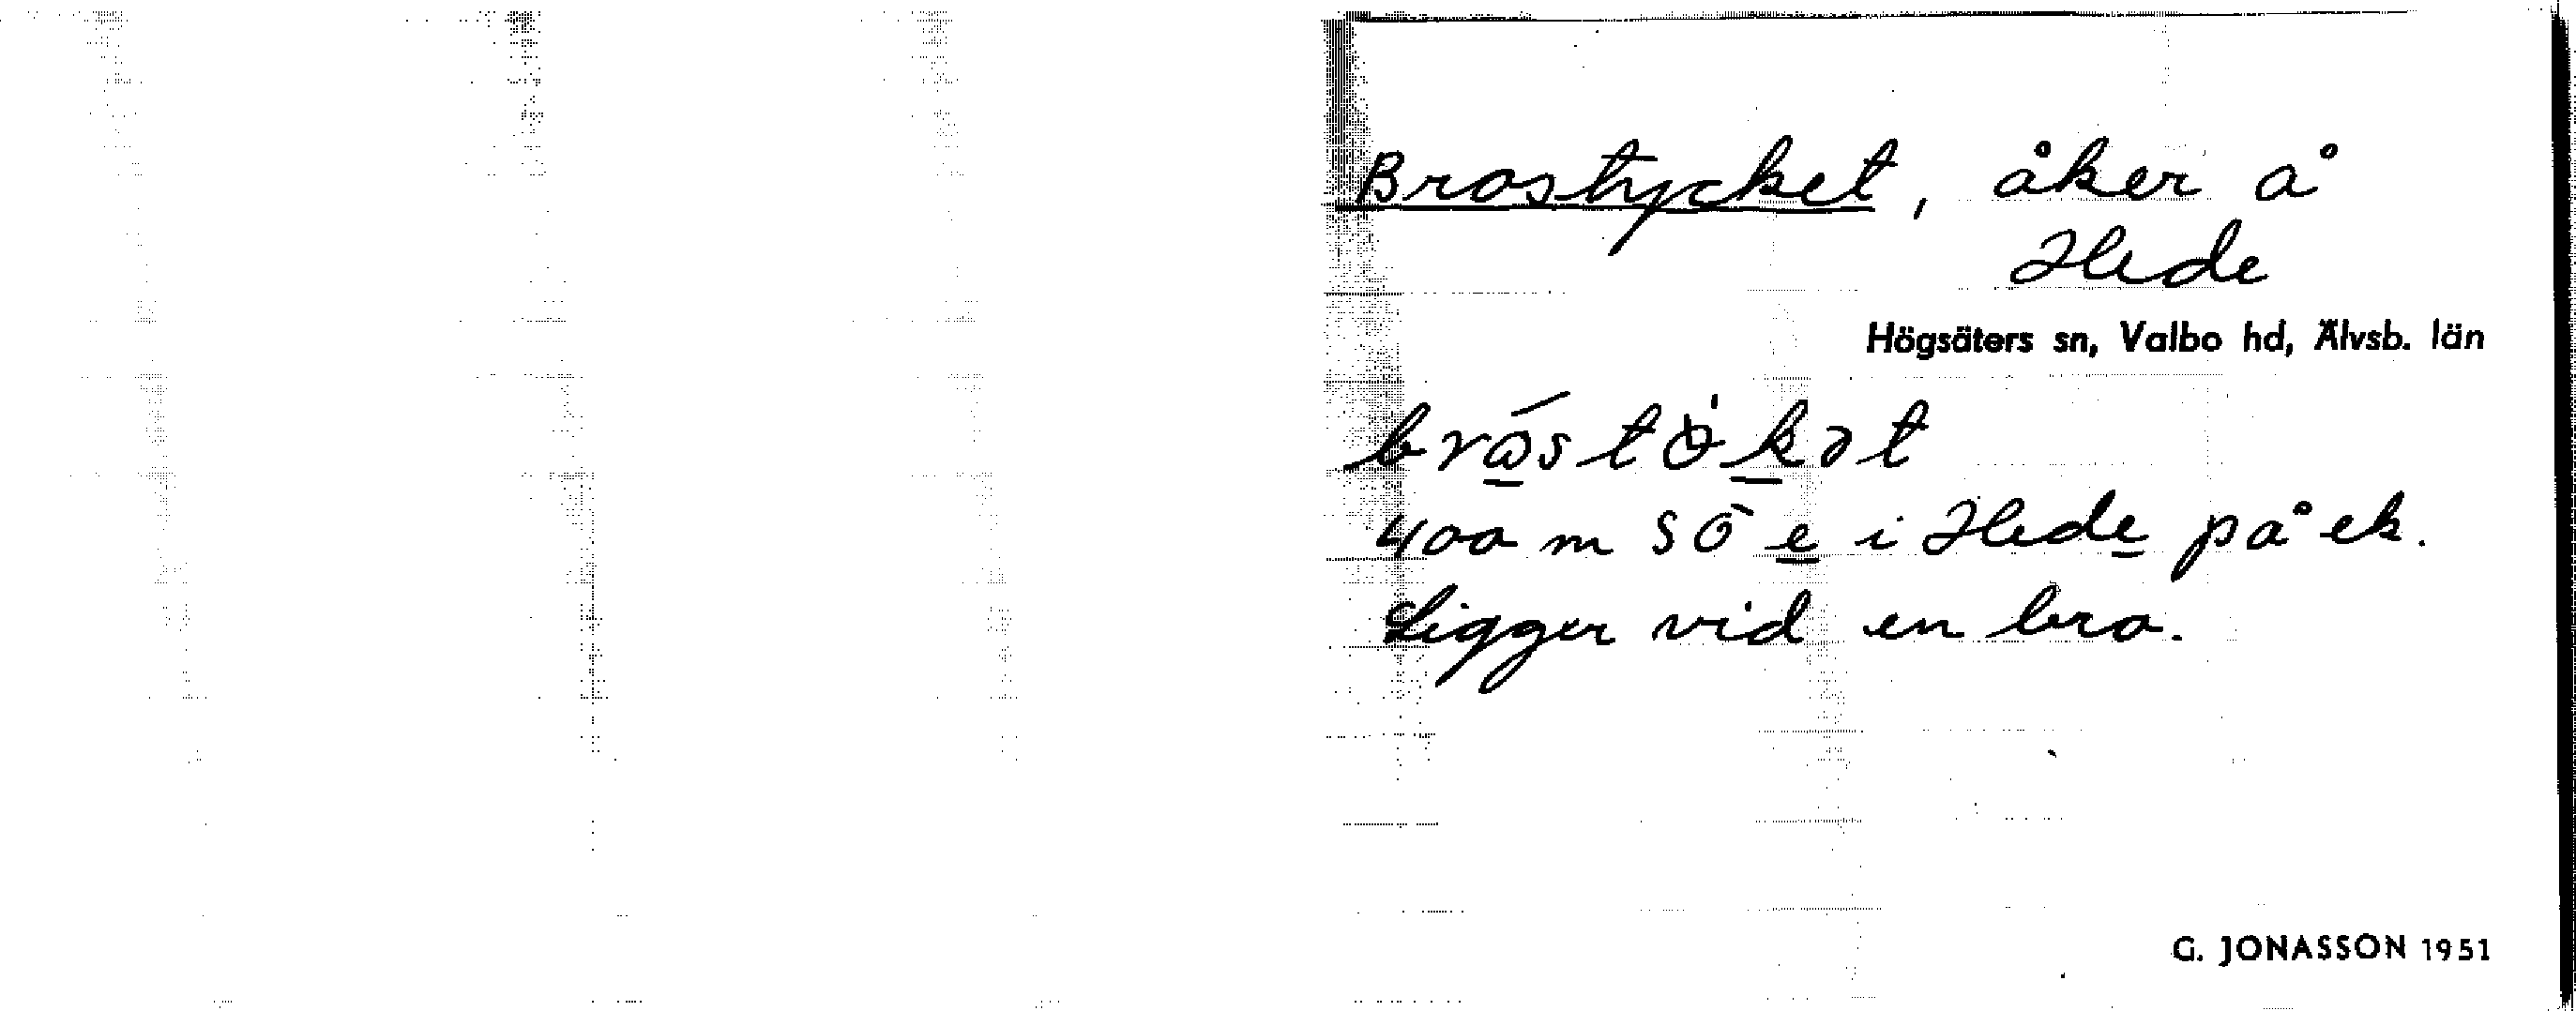 Brostycket, åker å
Hede
Högsäters sn, Valbo hd, Älvsb. län
400 m SÖ e i Hede på ek.
Ligger vid en bro.
G. JONASSON 1951